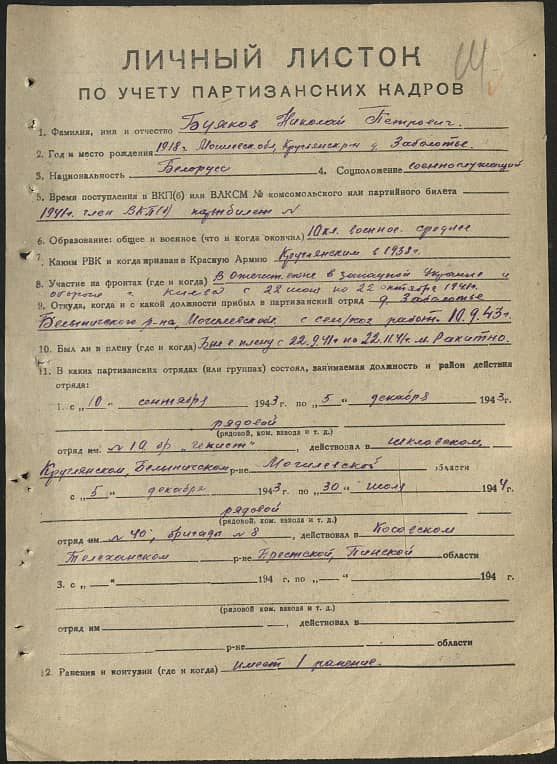 ЛИЧНЫЙ ЛИСТОК
ПО УЧЕТУ ПАРТИЗАНСКИХ КАДРОВ
1. Фамилия, имя и отчество Буяков Николай Петрович.
2. Год и место рождения 1918 г Могилевск. обл, Круглянск р-н д. Заболотье.
3. Национальность Белорусс 4. Соцположение военнослужащий
5. Время поступления в ВКП(б) или ВЛКСМ № комсомольского или партийного билета
1941г. член ВКП(б) партбилет №
6. Образование: общее и военное (что и когда окончил) 10 кл. военное. среднее
7. Каким РВК и когда призван в Красную Армию Круглянским в 1938 г.
8. Участие на фронтах (где и когда) В западной Украине и
обороне г. Киева с 22 июня по 22 октября 1941г.
9. Откуда, когда и с какой должности прибыл в партизанский отряд д. Заболотье
Белыничского р-на, Могилевской с 10.9.43г.
10. Был ли в плену (где и когда) Был в плену с 22.9.41г по 22.11.41г. м. Ракитно.
11. В каких партизанских отрядах (или группах) состоял, занимаемая должность и район действия
отряда:
1. с „10“ сентября 1943 г. по „5“ декабря 1943 г.
рядовой
(рядовой, ком. взвода и т. д.)
отряд им. №10 бр „Чекист“, действовал в Шкловском,
Круглянском, Белыничском р-не Могилевской области
с „5“ декабря 1943 г. по „30“ июля 1944 г.
рядовой
(рядовой, ком. взвода и т. д.)
отряд им №40, бригада №8, действовал в Косовском
Телеханском р-не Брестской, Пинской области
3. с „ “ 194 г. по „ “ 194 г.
(рядовой ком. взвода и т. д.)
отряд им , действовал в
р-не области
12. Ранения и контузии (где и когда) имеет 1 ранение.